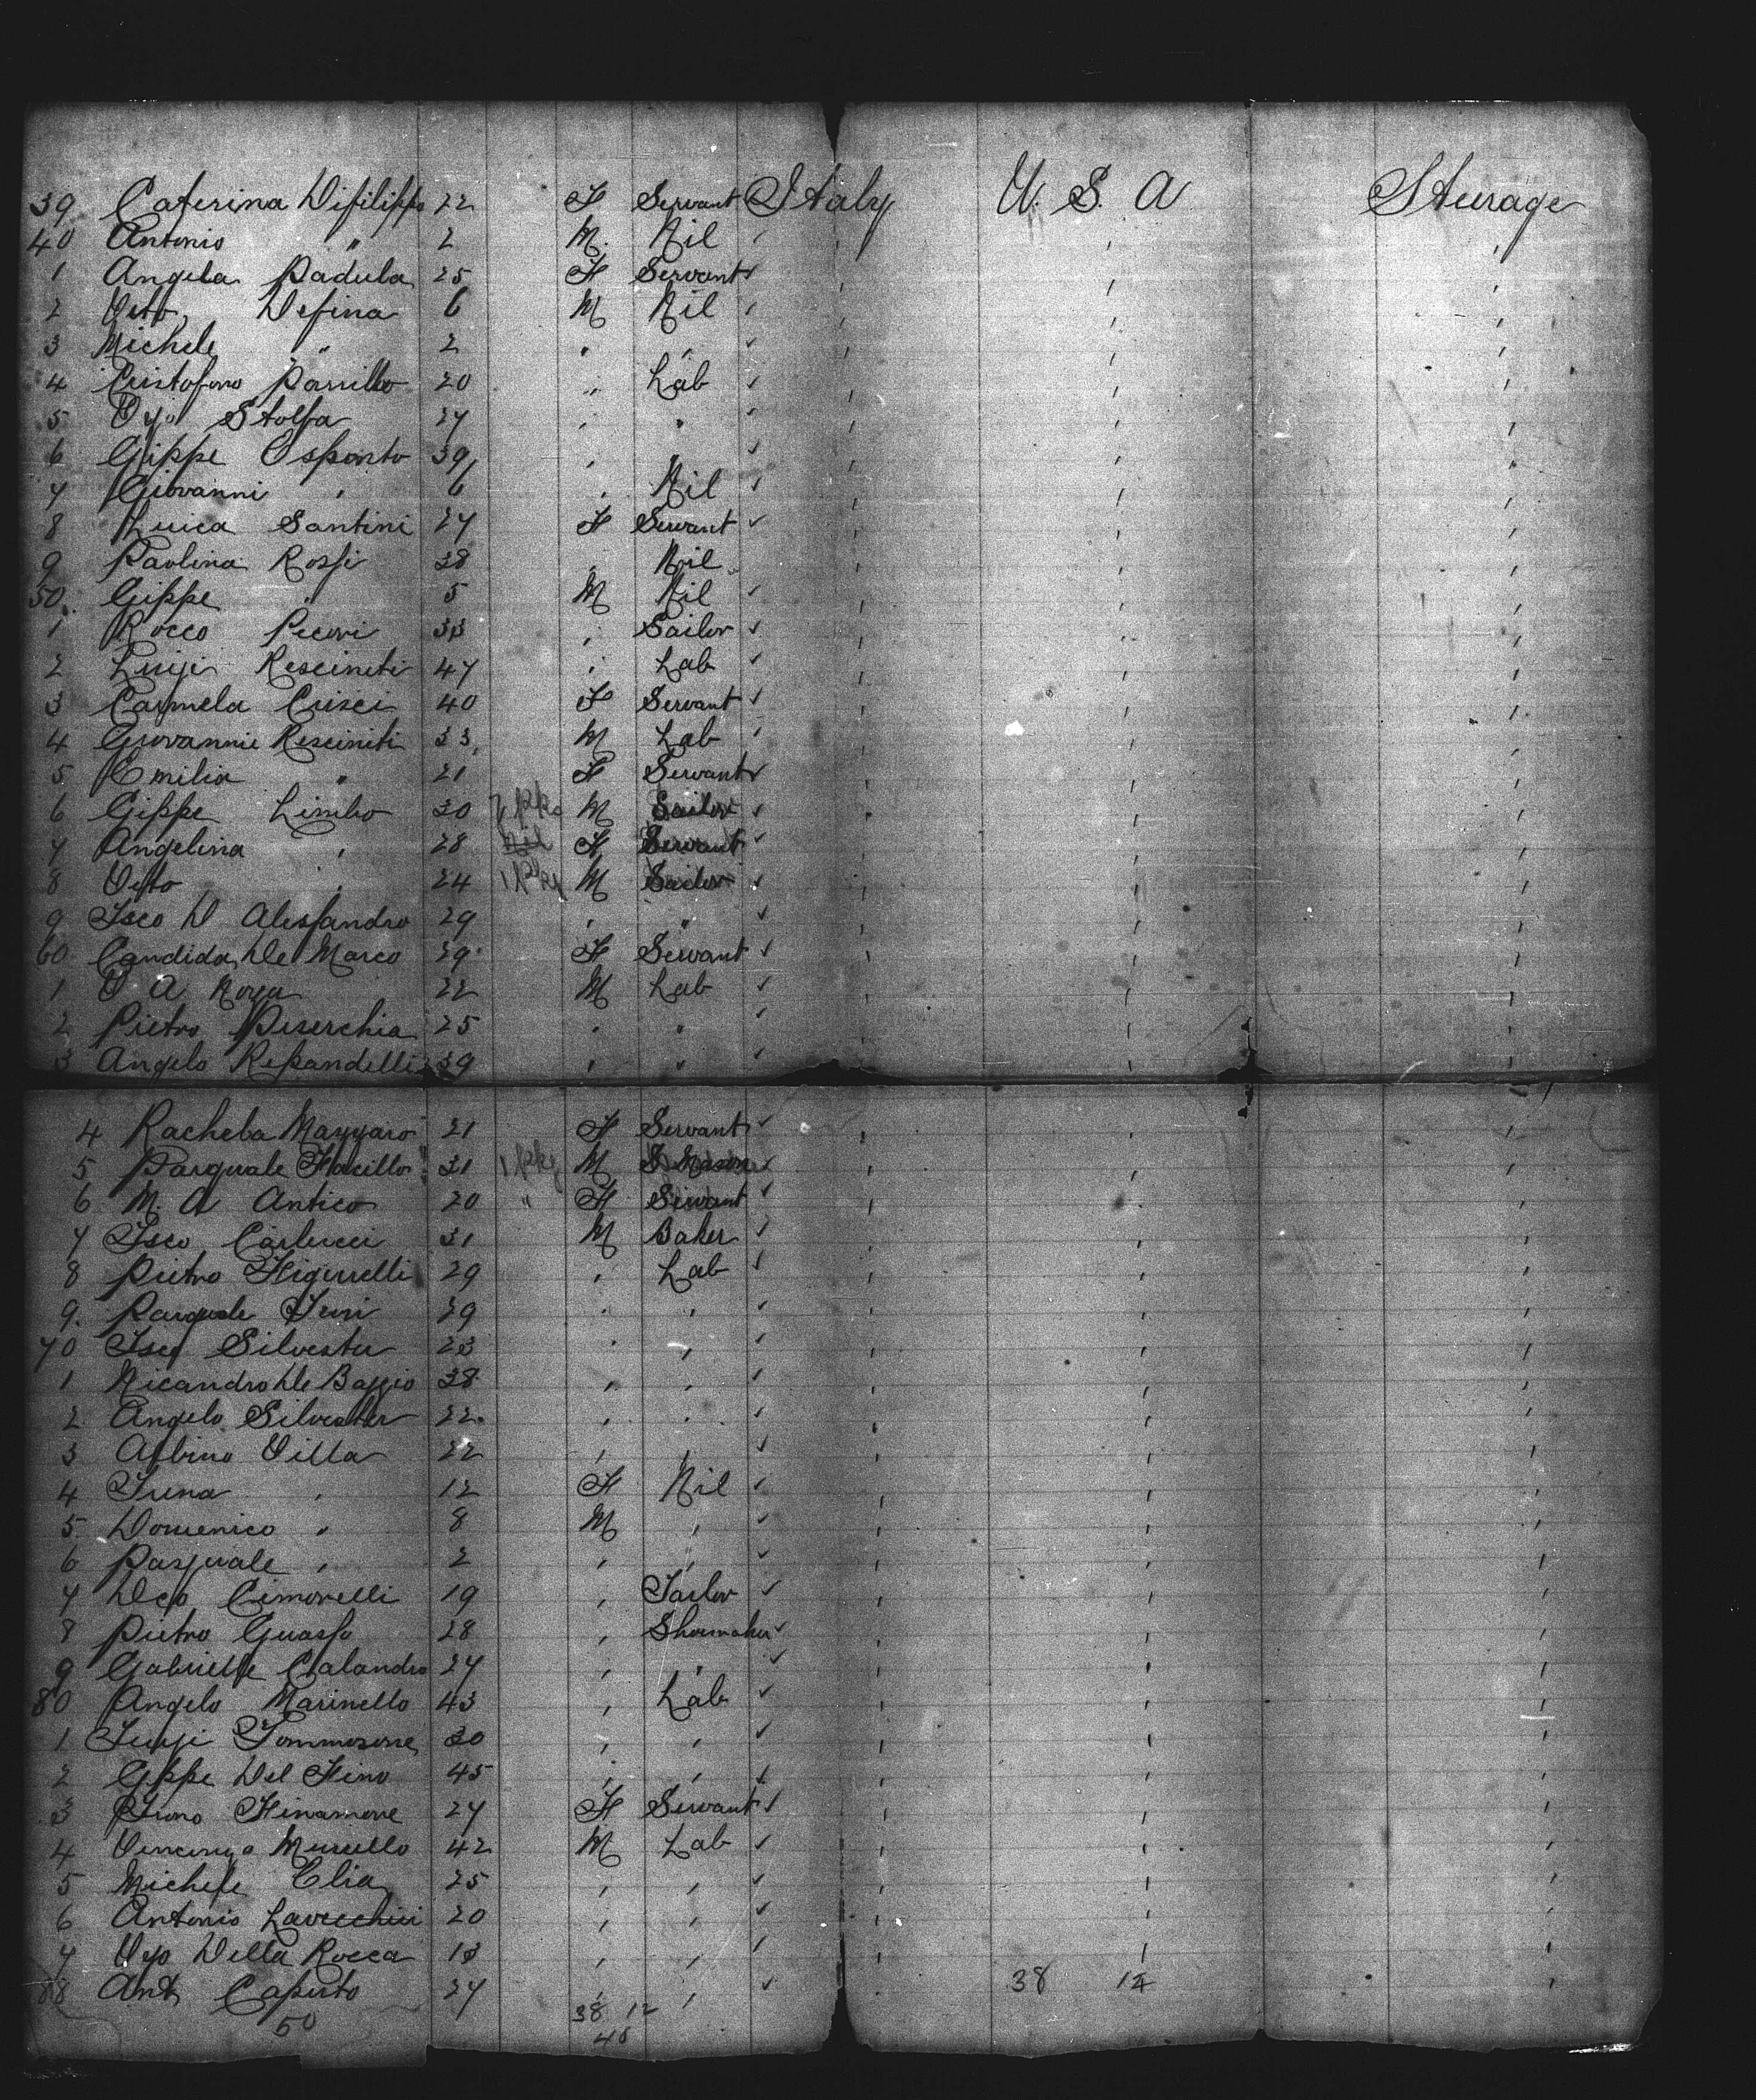 39 Caterina Difilippo 22 F Servant Italy U. S. A Steerage
40 Antonio " 2 M. Nil
1 Angela Padula 25 F Servant
2 Vito Defina 6 M Nil
3 Michele " 2 " "
4 Cristoforo Parrillo 20 " Lab
5 Stolfa 27 " "
6 Gippe Esposito 39 " "
7 Giovanni " 6 " Nil
8 Luica Santini 27 F Servant
9 Paolina Rossi 38 " Nil
50 Gippe " 5 M Nil
1 Rocco Pecori 33 " Sailor
2 Luigi Resciniti 47 " Lab
3 Carmela Crisci 40 F Servant
4 Giovannie Resciniti 33 M Lab
5 Emilia " 21 F Servant
6 Gippe Limbo 30 pkg M Sailor
7 Angelina " 28 Nil F Servant
8 Vito " 24 1 pkg M Sailor
9 Fsco D Alessandro 29 " "
60 Candida De Marco 29 F Servant
1 V A Noya 22 M Lab
2 Pietro Piserchia 25 " "
3 Angelo Repandelli 39 " "
4 Rachela Mayyaro 21 F Servant
5 Pasquale Flocillo 31 1 pkg M S Mason
6 M. A Antico 20 " F Servant
7 Fsco Carlucci 31 M Baker
8 Pietro Figurelli 29 " Lab
9. Pasquale 29 " "
70 Fsco Silvester 23 " "
1 Nicandro De Baggio 38 " "
2 Angelo Silvester 22 " "
3 Albino Villa 22 " "
4 Irena " 12 F Nil
5 Domenico " 8 M "
6 Pasquale " 2 " "
7 Dco Cimorelli 19 " Tailor
8 Pietro Guasfo 28 " Shoemaker
9 Gabrielle Calandro 27 " "
80 Angelo Marinello 43 " Lab
1 Luigi Tommosone 30 " "
2 Gppe Del Fino 45 " "
3 Finamore 27 F Servant
4 Vincenzo Muriello 42 M Lab
5 Michele Elia 25 " "
6 Antonio Lavecchia 20 " "
7 Della Rocca 13 " "
88 Ant Caputo 27 " " 38 12
50 38 12
48